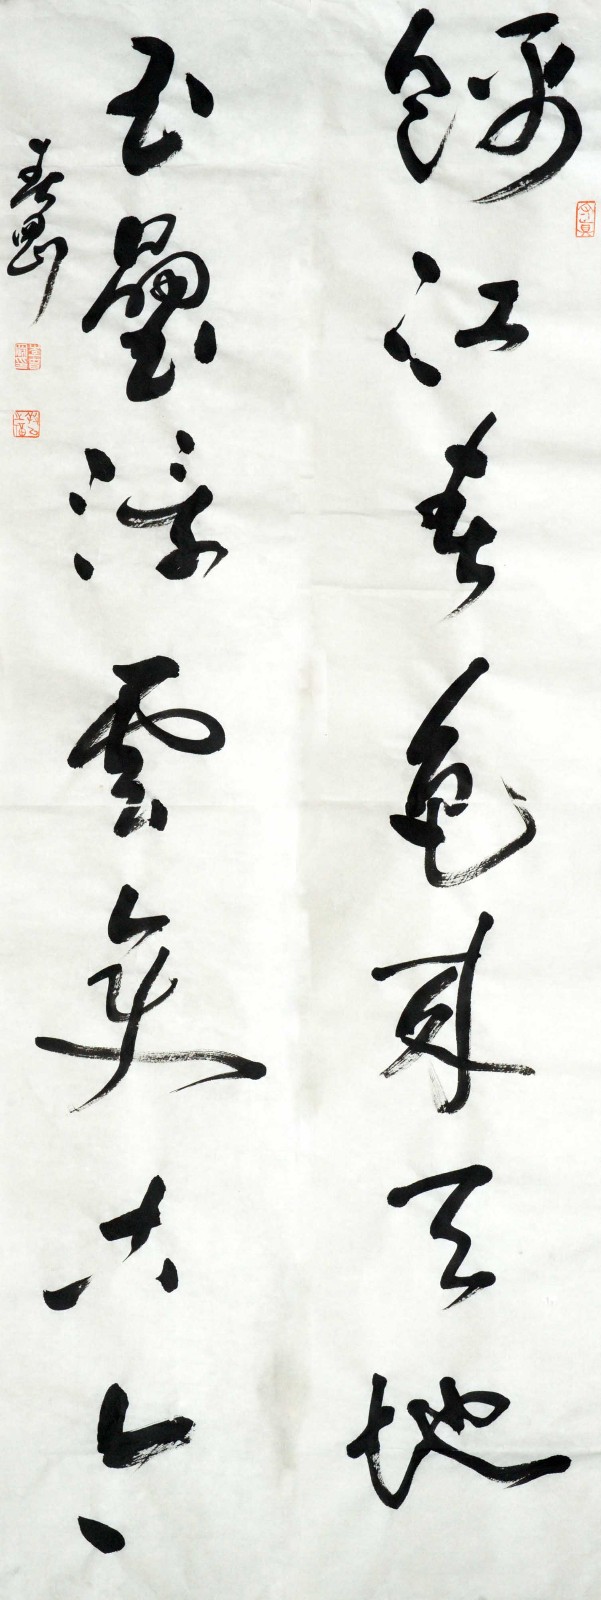 錦江春色來天地
玉壘浮雲變古今